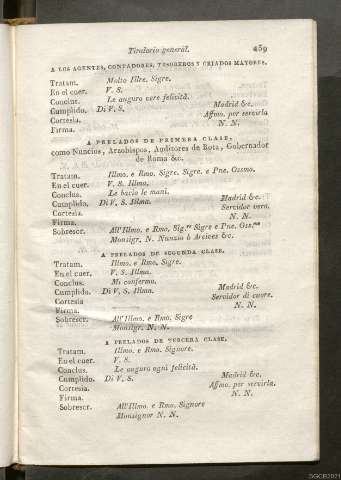 Titulario general. 459
A LOS AGENTES, CONTADORES, TESOREROS Y CRIADOS MAYORES.
Tratam. Molto Illre. Sigre.
En el cuer. V. S.
Conclus. Le auguro vere felicità.
Cumplido. Di V. S. Madrid &c.
Cortesía. Affmo. per servirla
Firma. N. N.
A PRELADOS DE PRIMERA CLASE,
como Nuncios, Arzobispos, Auditores de Rota, Gobernador
de Roma &c.
Tratam. Illmo. e Rmo. Sigre. Sigre. e Pne. Ossmo.
En el cuer. V. S. Illma.
Conclus. Le bacio le mani.
Cumplido. Di V. S. Illma. Madrid &c.
Cortesía. Servidor vero.
Firma. N. N.
Sobrescr. All'Illmo. e Rmo. Sig.re Sigre e Pne. Oss.mo
Monsigr. N. Nunzio ò Arcives &c.
A PRELADOS DE SEGUNDA CLASE.
Tratam. Illmo. e Rmo. Sigre.
En el cuer. V. S. Illma.
Conclus. Mi confermo.
Cumplido. Di V. S. Illma. Madrid &c.
Cortesía Servidor di cuore.
Firma. N. N.
Sobrescr. All'Illmo. e Rmo. Sigre
Monsigr. N. N.
A PRELADOS DE TERCERA CLASE.
Tratam. Illmo. e Rmo. Signore.
En el cuer. V. S.
Conclus. Le auguro ogni felicità.
Cumplido. Di V. S. Madrid &c.
Cortesía. Affmo. per servirla.
Firma. N. N.
Sobrescr. All'Illmo. e Rmo. Signore
Monsignor N. N.
DGCB2021